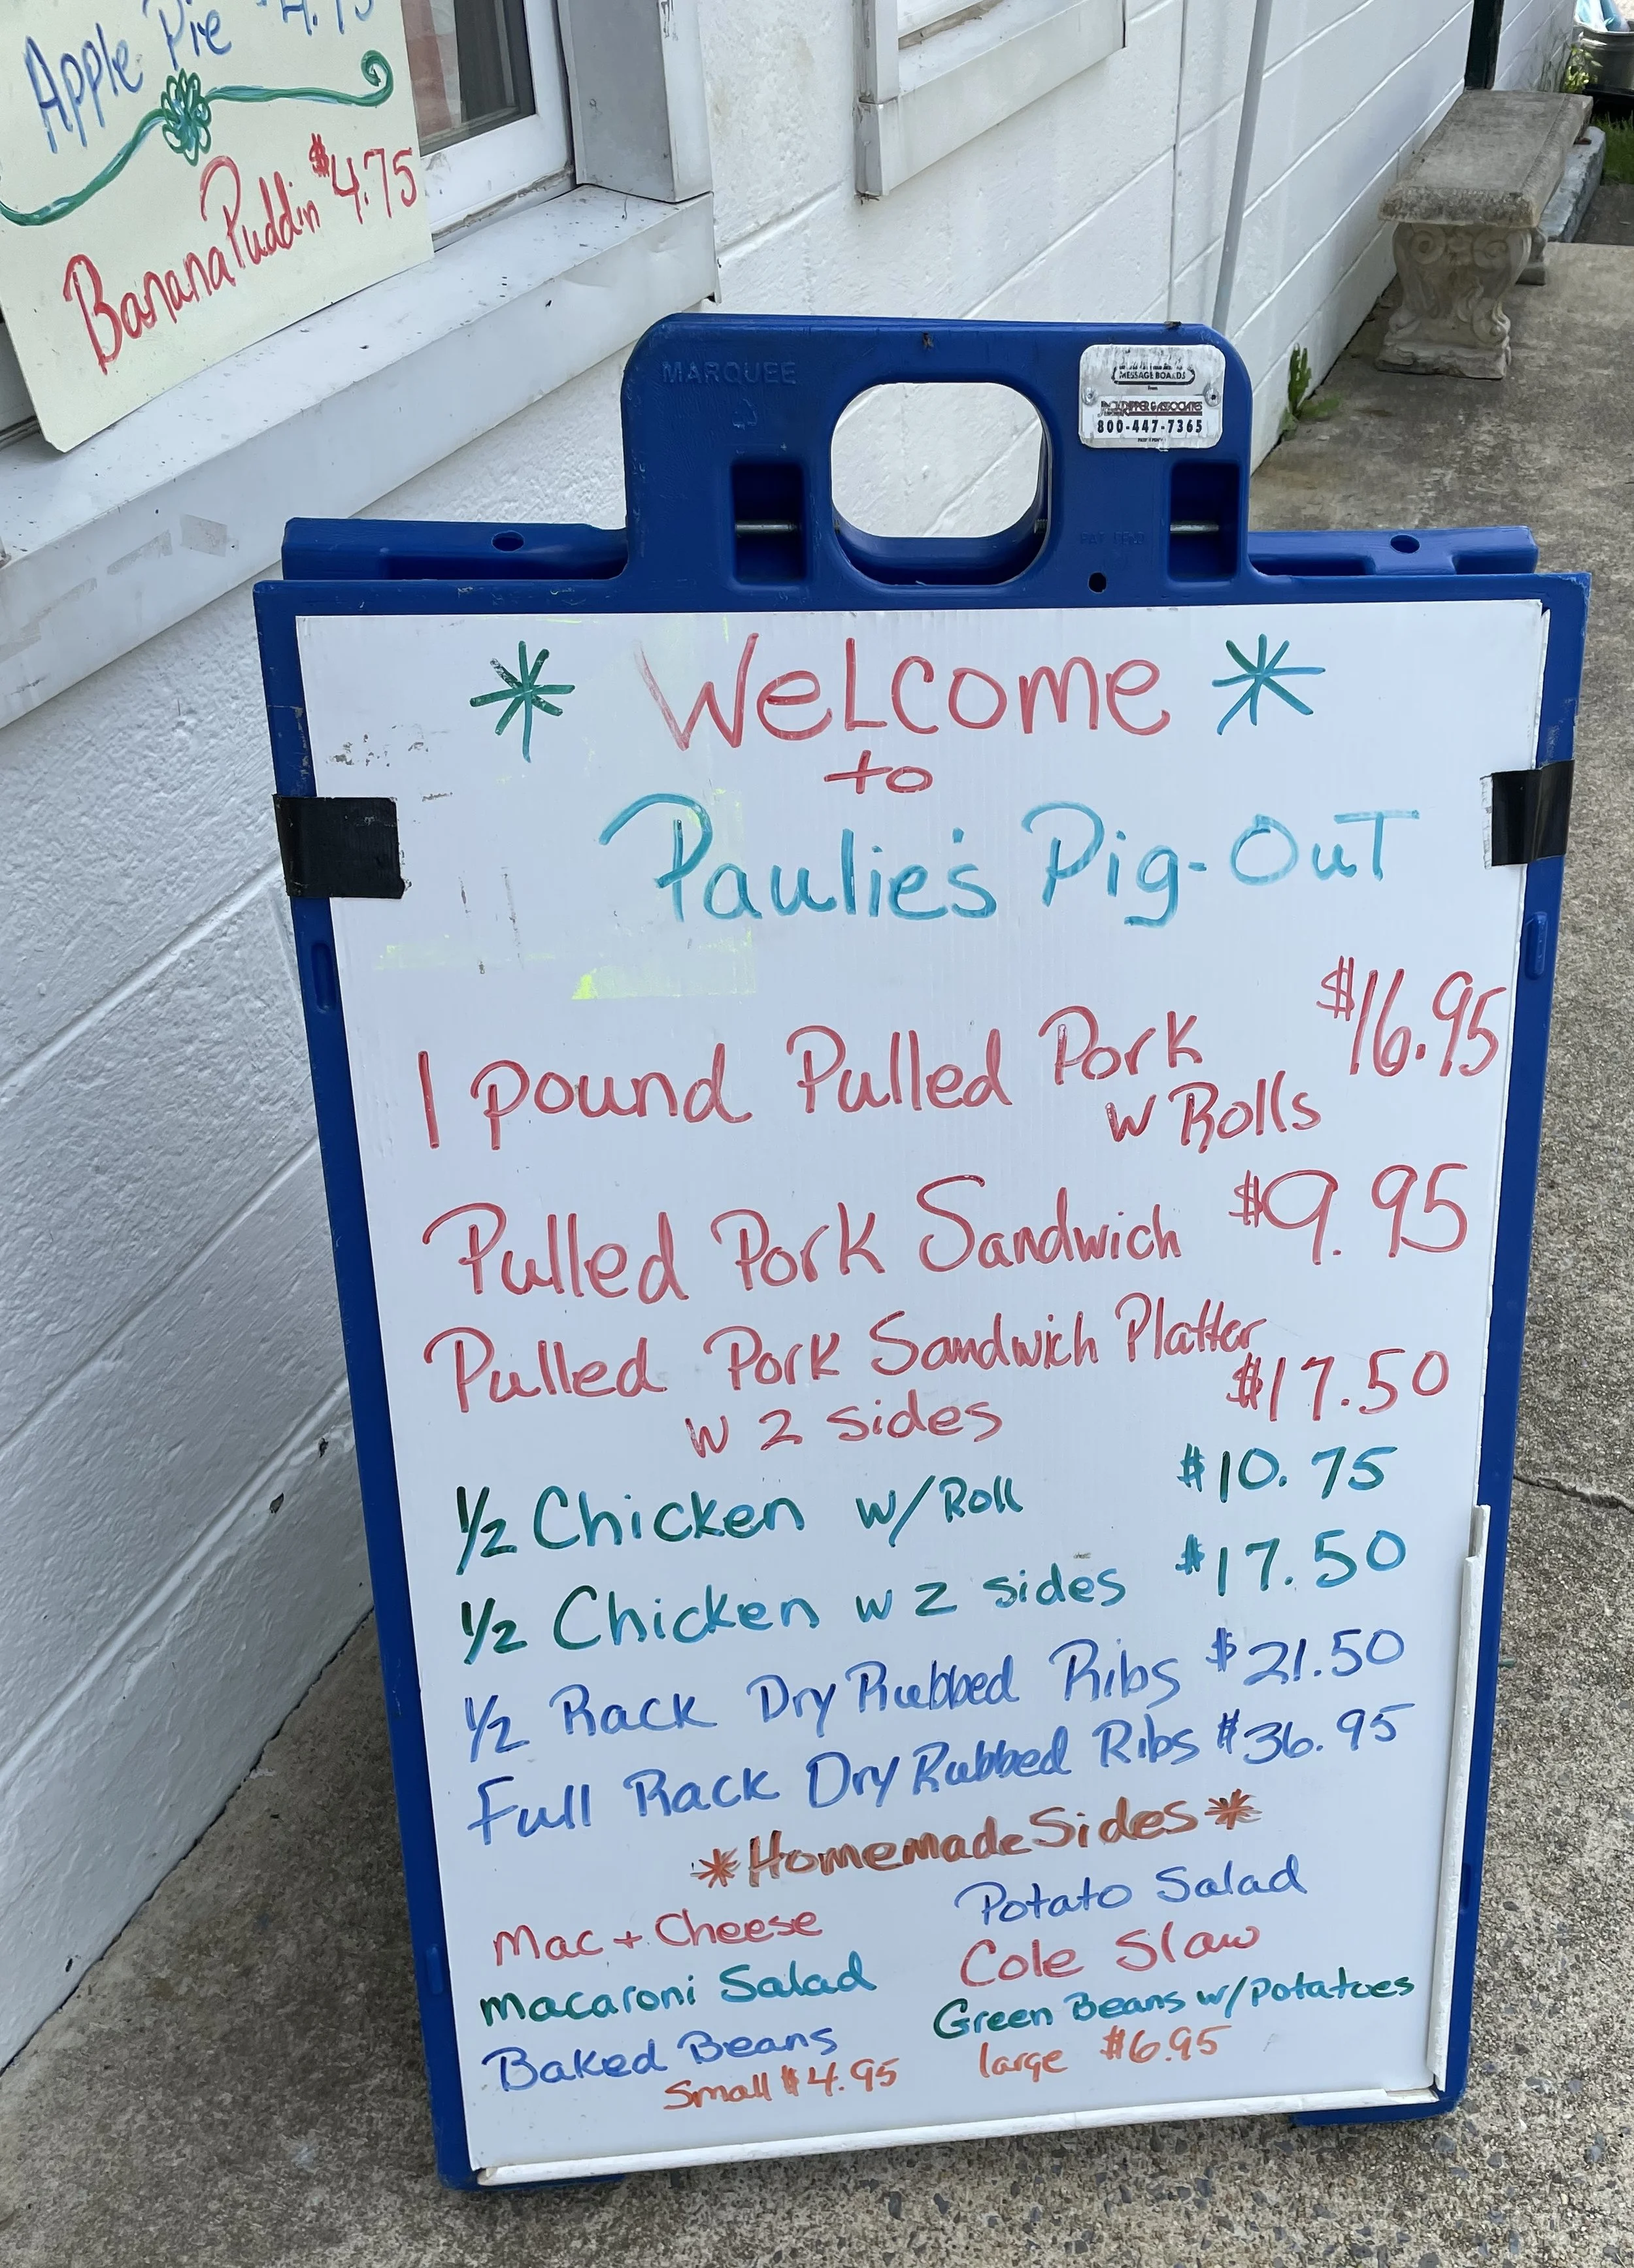 Apple Pie $4.75
Banana Puddin $4.75
MARQUEE
MESSAGE BOARDS
from
& ASSOCIATES
800-447-7365
* WeLcome *
to
Paulie's Pig-OuT
1 pound Pulled Pork $16.95
w Rolls
Pulled Pork Sandwich $9.95
Pulled Pork Sandwich Platter
w 2 sides $17.50
1/2 Chicken w/Roll $10.75
1/2 Chicken w 2 sides $17.50
1/2 Rack Dry Rubbed Ribs $21.50
Full Rack Dry Rubbed Ribs $36.95
*Homemade Sides*
Mac + Cheese Potato Salad
Macaroni Salad Cole Slaw
Baked Beans Green Beans w/potatoes
Small $4.95 large $6.95